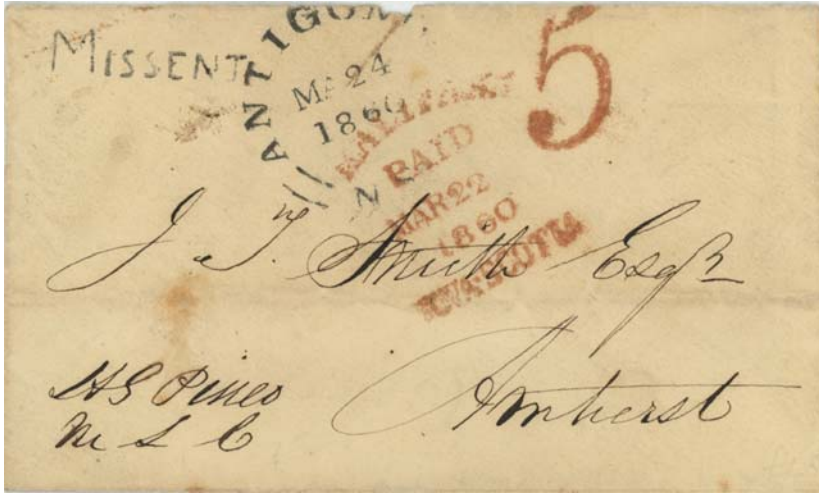 MISSENT
ANTIGON
MA 24
1860
N
5
HALIFAX
PAID
MAR 22
1860
NOVA SCOTIA
J. T. Smith Esqr
Amherst
H G Pineo
M L C